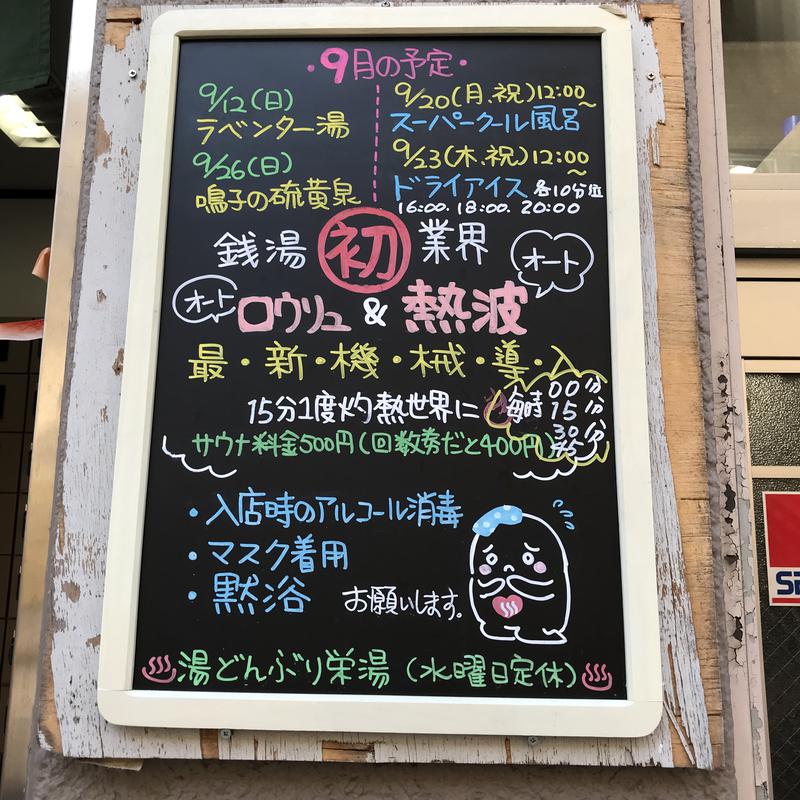 ・9月の予定・
9/12(日)
ラベンター湯
9/26(日)
鳴子の硫黄泉
9/20(月、祝)12:00〜
スーパークール風呂
9/23(木、祝)12:00〜
ドライアイス 各10分位
16:00. 18:00. 20:00
銭湯 初 業界 オート
オート ロウリュ & 熱波
最・新・機・械・導・入
15分1度灼熱世界に 毎時 00分 15分 30分 45
サウナ料金500円(回数券だと400円)
・入店時のアルコール消毒
・マスク着用
・黙浴 お願いします。
湯どんぶり栄湯(水曜日定休)